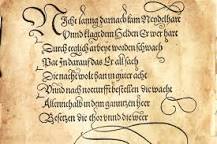 Nicht lanng darnach kam Neydelhart
Vnnd klagt dem Helden Er wer hart
Durch teglich arbeyt worden schwach
Pat In darauf das Er all sach
Die nacht wolt han in guter acht
Vnnd nach notturfft bestellen die wacht
Allennthalb in dem ganntzen heer
Besetzen die thor vnnd die weer